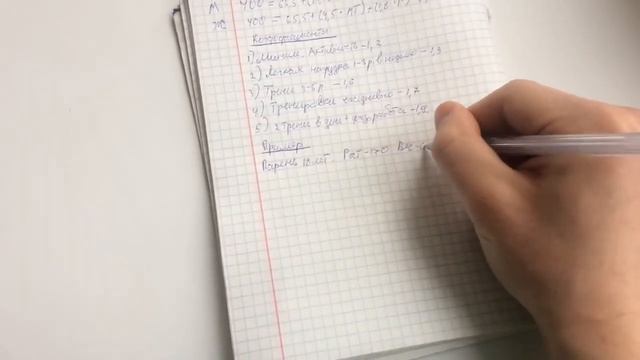 М УОО = 66,5 +
Ж УОО = 65,5 + (9,5 · МТ) + (1,8 ·
Коэффициенты
1) Миним. Активность - 1,2
2) Легкая нагрузка 1-3 р в неделю - 1,3
3) Трени 3-5 р - 1,6
4) Тренировки ежедневно - 1,7
5) 2 Трени в дни + физ работа - 1,9
Пример
Парень 18 лет Рост - 170 Вес -